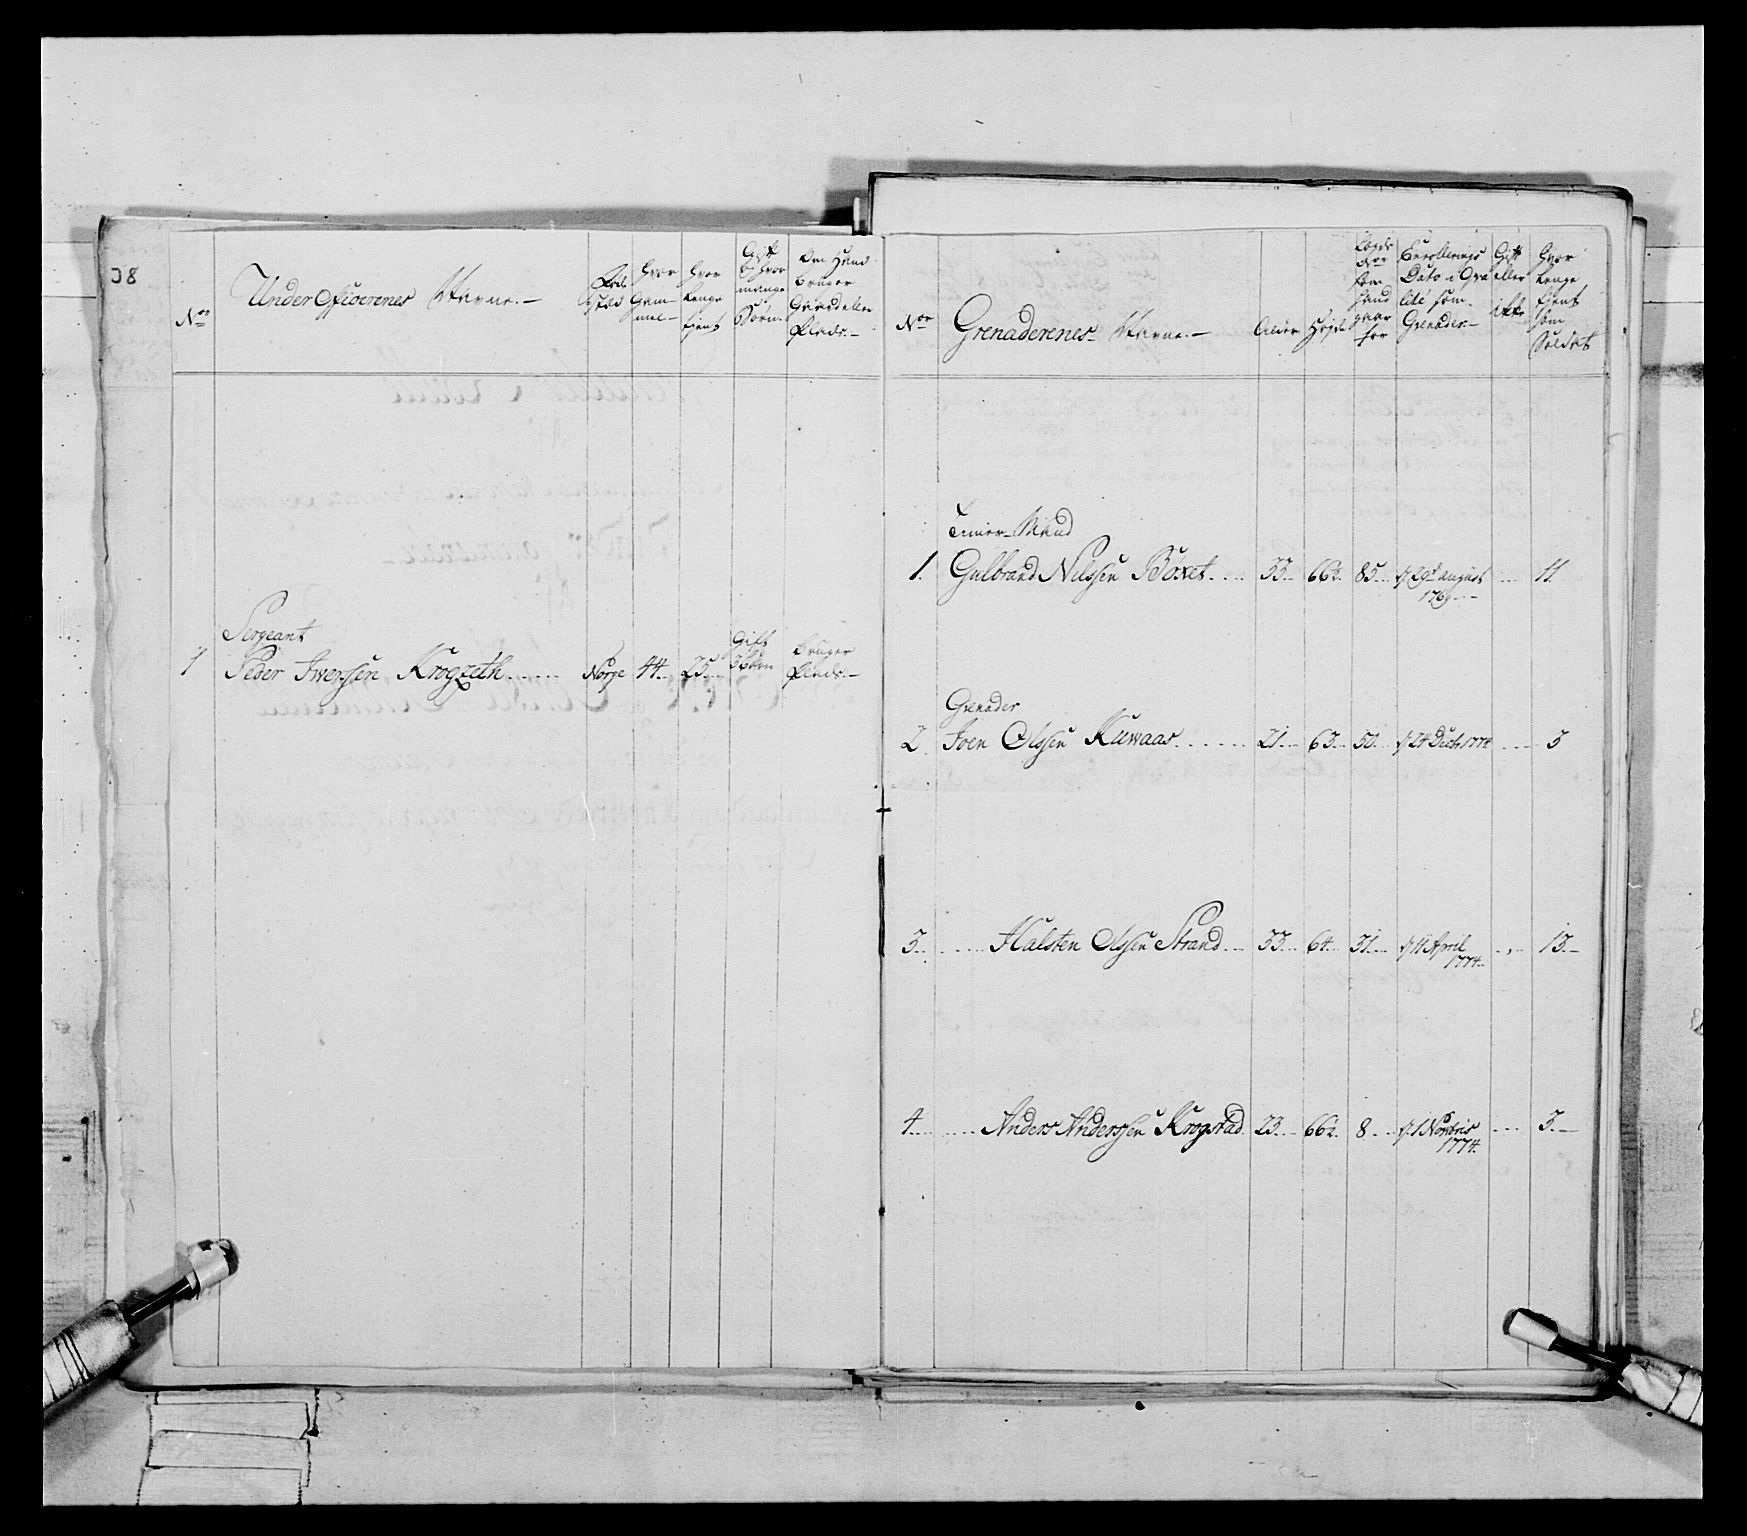 38
Nor
Under Officerenes Navne.
Føde
Sted
Hvor
Gam-
mel
Hvor
Lenge
tient
Gift
og hvor
mange
Børn.
Om Hand
bruger
Gaard eller
Plads.
Sergeant
1 Peder Iwersen Krogzeth Norge 44 25 Gift 3 Børn bruger Plads.
Nor
Grenaderenes Navne.
Alder
Højde
Lægds
Nor
som
hand
gaar
for
Enrollerings
Dato i Qva
lité som
Grenader.
Gift
eller
ikke
Hvor
Lenge
tient
som
Soldat
Timer-Mand
1. Gulbrand Nilssen 33 66½ 85 d 29d august 11
1769
Grenader
2 Joen Olssen Kuwaas 21 63 50 d 24 Decbr 1774 3
3. Halsten Olssen Strand 33 64 31 d 11 April 13.
1774
4 Anders Anderssen Krogstad 23 66½ 8 d 1 Novbris 3.
1774.